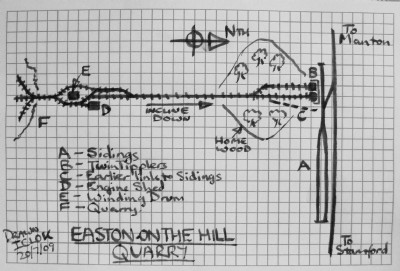 NTH
To
Manton
E
B
D
INCLINE
DOWN
F
C
HOME
WOOD
A
A - Sidings
B - Twin Tipplers
C - Earlier link to Sidings
D - Engine Shed
E - Winding Drum
F - Quarry
Drawn
20/7/09
EASTON-ON-THE HILL
QUARRY
To
Stamford